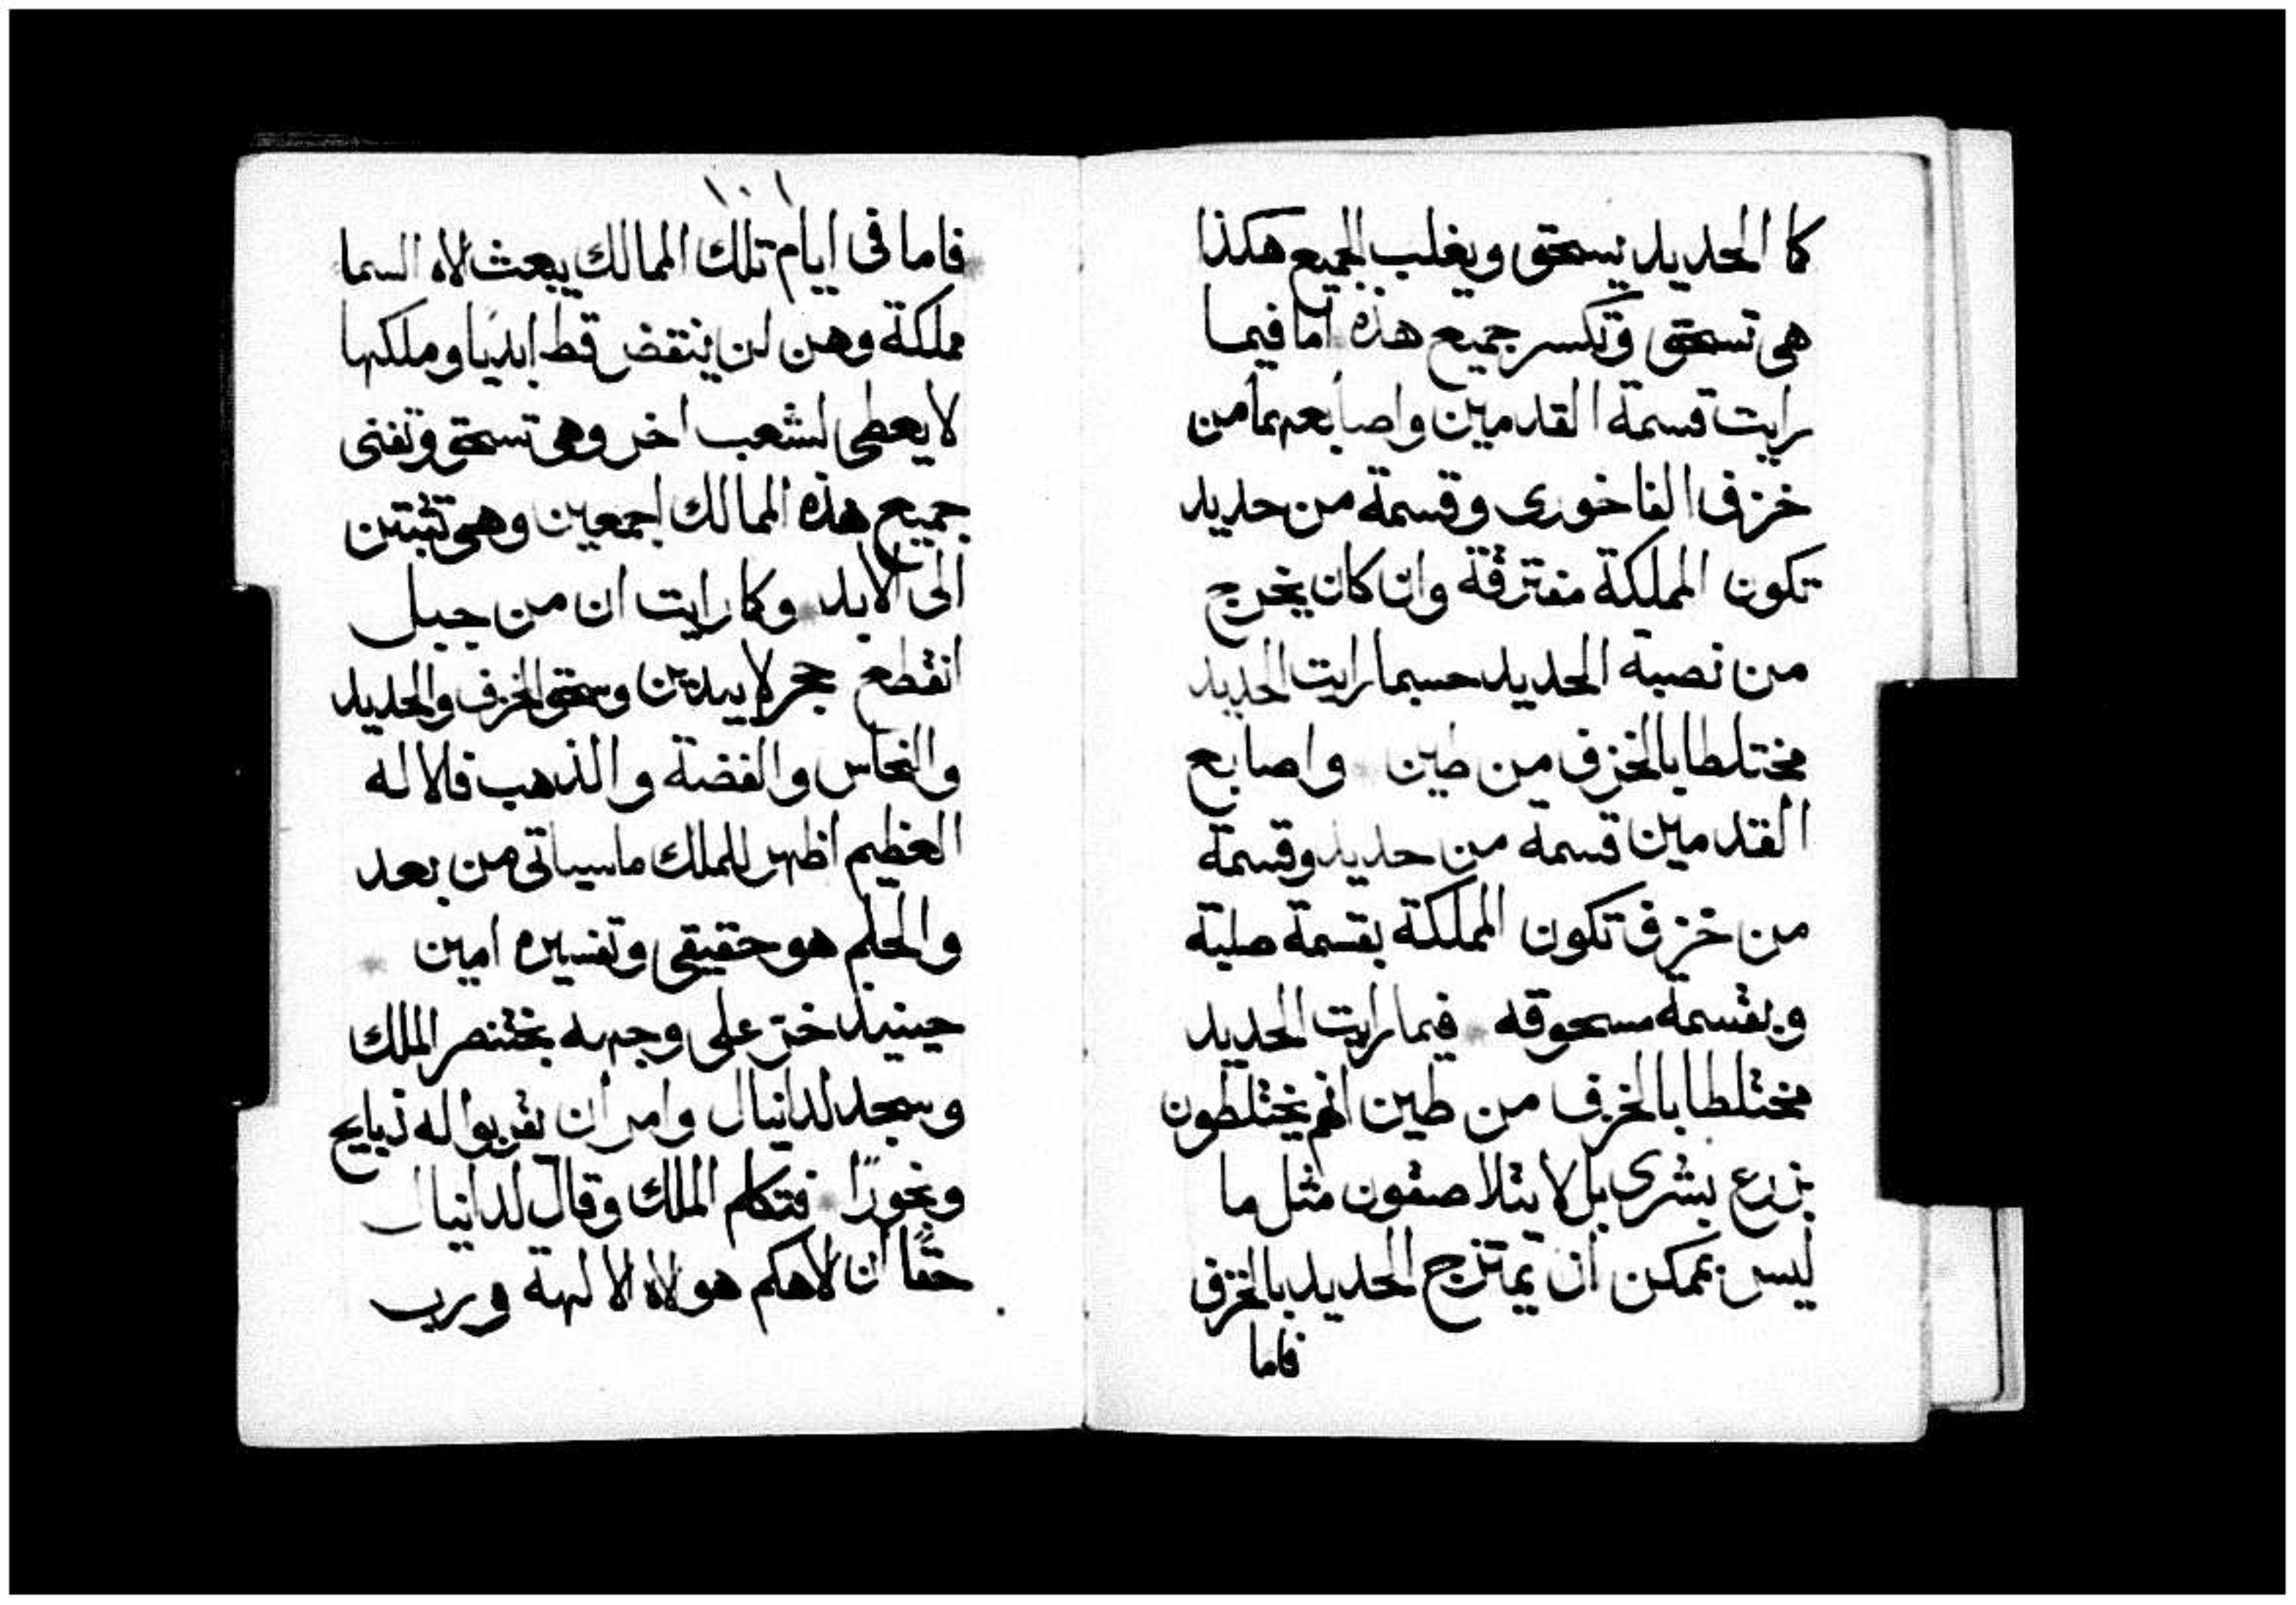 كما الحديد يسحق ويغلب الجميع هكذا
هى تسحق وتكسر جميع هذه اما فيما
رايت قسمة القدمين واصابعهما من
خزف الفاخورى وقسمة من حديد
تكون المملكة مفترقة وان كان يخرج
من نصبة الحديد حسبما رايت الحديد
مختلطا بالخزف من طين واصابع
القدمين قسمة من حديد وقسمة
من خزف تكون المملكة بقسمة صلبة
وبقسمة مسحوقه فيما رايت الحديد
مختلطا بالخزف من طين انهم يختلطون
بزرع بشرى بل لا يتلاصقون مثل ما
ليس بممكن ان يمتزج الحديد بالخزف
فاما
فاما فى ايام تلك الممالك يبعث لاه السما
مملكة وهن لن ينتقض قط ابديا وملكها
لا يعطى لشعب اخر وهى تسحق وتفنى
جميع هذه الممالك اجمعين وهى تثبتن
الى الابد وكما رايت ان من جبل
انقطع حجر لا بيدين وسحق الخزف والحديد
والنحاس والفضة والذهب فالاله
العظيم اظهر للملك ما سياتى من بعد
والحلم هو حقيقى وتفسيره امين
حينيذ خر على وجهه بختنصر الملك
وسجد لدانيال وامر ان يقربوا له ذبايح
وبخورًا فتكلم الملك وقال لدانيال
حقًا ان لاهكم هو لاه الالهة ورب